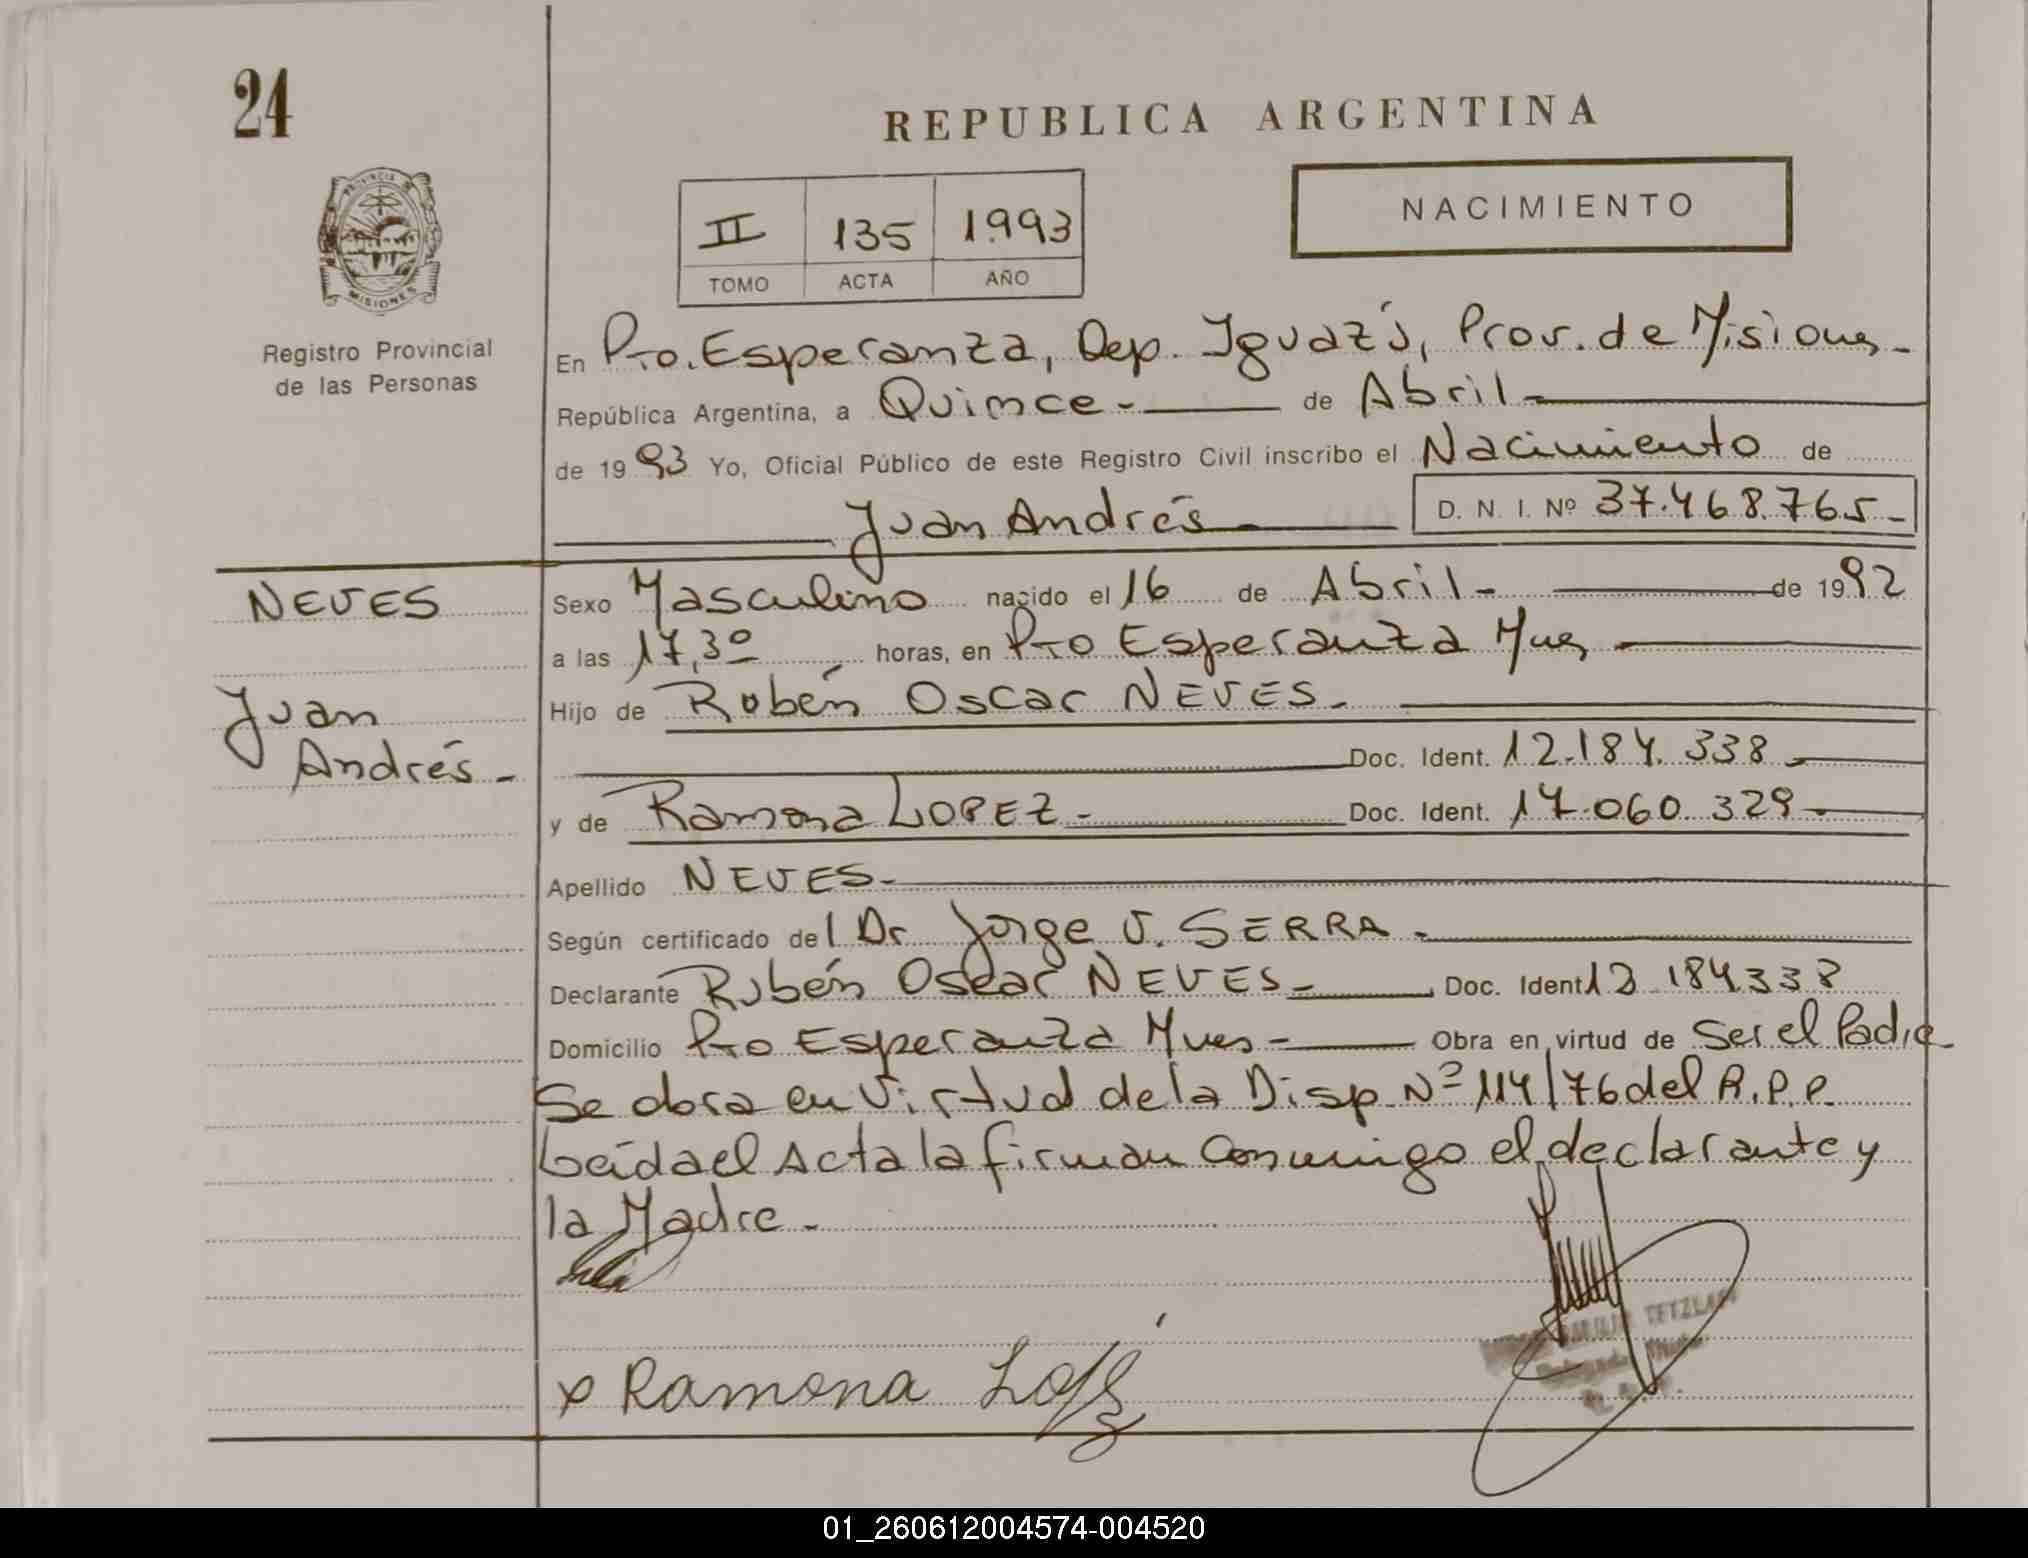 24
REPUBLICA ARGENTINA
PROVINCIA DE
MISIONES
Registro Provincial
de las Personas
II 135 1993
TOMO ACTA AÑO
NACIMIENTO
En Pto. Esperanza, Dep. Iguazú, Prov. de Misiones-
República Argentina, a Quince - de Abril -
de 1993 Yo, Oficial Público de este Registro Civil inscribo el Nacimiento de
Juan Andrés - D. N. I. Nº 37.468.765-
NEVES
Juan
Andrés -
Sexo Masculino nacido el 16 de Abril - de 1992
a las 17,30 horas, en Pto Esperanza Mnes -
Hijo de Rubén Oscar NEVES -
Doc. Ident. 12.184.338 -
y de Ramona LOPEZ - Doc. Ident. 17.060.329 -
Apellido NEVES -
Según certificado del Dr Jorge V. SERRA -
Declarante Rubén Oscar NEVES - Doc. Ident 12.184.338
Domicilio Pto Esperanza Mnes - Obra en virtud de Ser el Padre
Se obra en Virtud de la Disp. Nº 114/76 del R.P.P.
Leída el Acta la firman conmigo el declarante y
la Madre -
TETZLAFF
x Ramona López
01_260612004574-004520